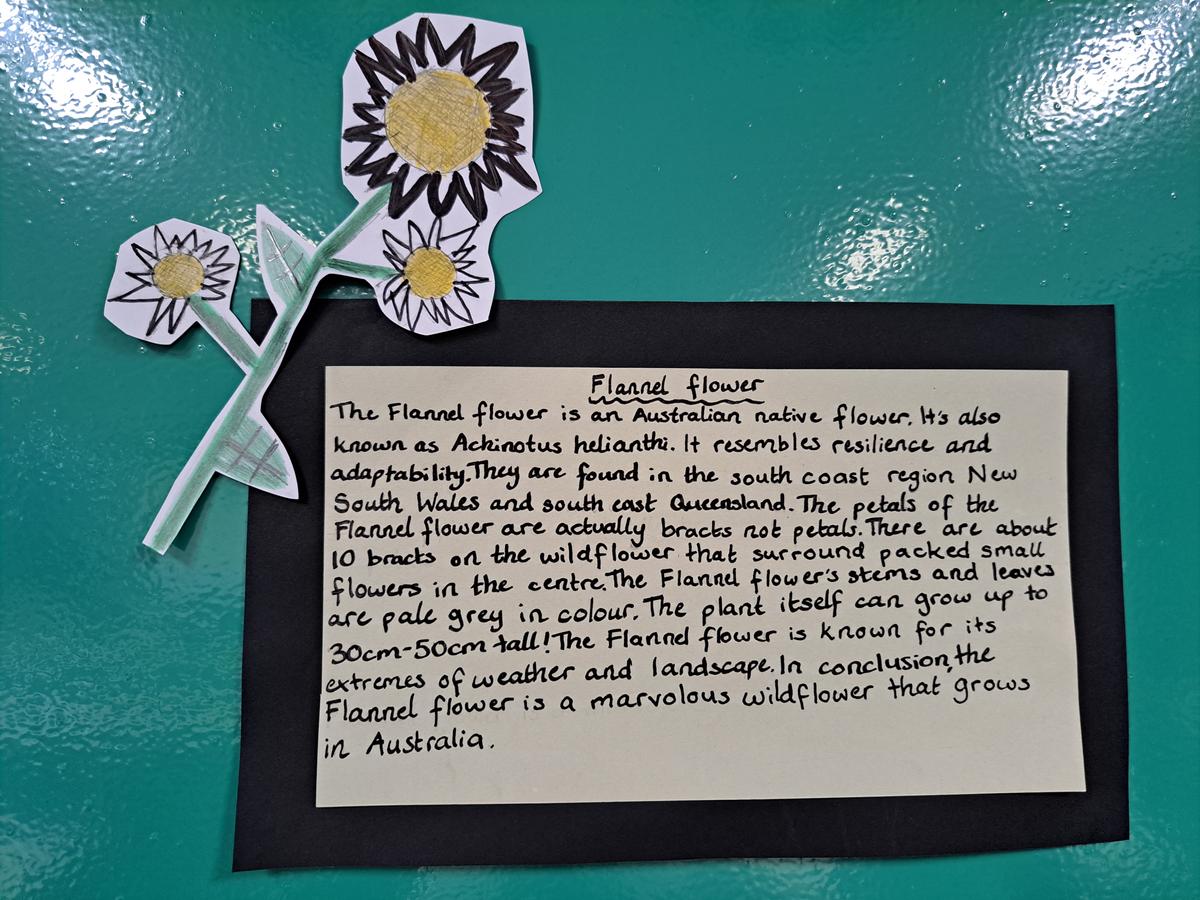 Flannel flower
The Flannel flower is an Australian native flower. It's also
known as Ackinotus helianthi. It resembles resilience and
adaptability. They are found in the south coast region New
South Wales and south east Queensland. The petals of the
Flannel flower are actually bracts not petals. There are about
10 bracts on the wildflower that surround packed small
flowers in the centre. The Flannel flower's stems and leaves
are pale grey in colour. The plant itself can grow up to
30cm-50cm tall! The Flannel flower is known for its
extremes of weather and landscape. In conclusion, the
Flannel flower is a marvolous wildflower that grows
in Australia.